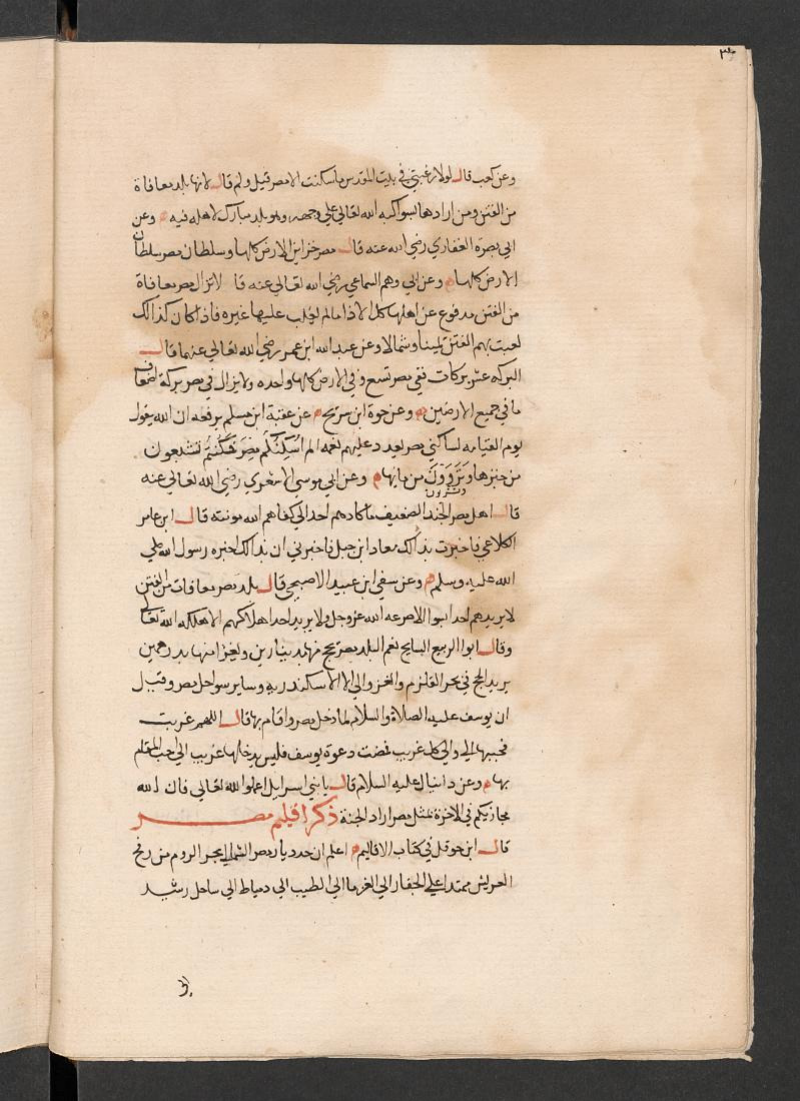 ٣
وعن كعب قال لولا رغبتي في بيت المقدس ما سكنت الا مصر قيل ولم قال لانها بلد معافاة
من الفتن ومن ارادها بسوا كبه الله تعالي علي وجهه وهو بلد مبارك لاهله فيه وعن
ابي بصرة الغفاري رضي الله عنه قال مصر خزاين الارض كلها وسلطان مصر سلطان
الارض كلها وعن ابي رهم السماعي رضي الله تعالي عنه قا لاتزال مصر معافاة
من الفتن مدفوع عن اهلها كل الاذا مالم يغلب عليها غيره فاذا كان كذالك
لعبت بهم الفتن يمينا وشمالا وعن عبد الله ابن عمر رضي الله تعالي عنهما قال
البركه عشر بركات ففي مصر تسع وفي الارض كلها واحده ولايزال في مصر بركة اضعاف
ما في جميع الارضين وعن حيوة ابن سريح عن عقبة ابن مسلم يرفعه ان الله يقول
يوم القيامه لساكني مصر يعدد عليهم نعمه الم اسكنكم مصر فكنتم تشبعون
من خبزها وتروون من مايها وعن ابي موسي الاشعري رضي الله تعالي عنه
قال اهل مصر الجند الضعيف ماكادهم احد الي كفاهم الله مونته قال ابن عامر
الكلاعي فاخبرت بذالك معاد ابن جبل فاخبرني ان بذالك اخبره رسول الله صلي
الله عليه وسلم وعن سفي ابن عبيد الاصبحي قال بلد مصر معافات من الفتن
لا يريدهم احد بسوا الا صرعه الله عزوجل ولا يريد احد اهلاكهم الا اهلكه الله تعا
وقال ابوا الربيع السايح نعم البلد مصر يحج منها بدينارين ويغزا منها بدرهمين
يريد الحج في بحر القلزم والغزو الي الاسكندريه وساير سواحل مصر وقيل
ان يوسف عليه الصلاة والسلام لما دخل مصر واقام بها قال اللهم غريب
فحببها الي والي كل غريب فمضت دعوة يوسف فليس يدخلها غريب الي احب المقام
بها وعن دانيال عليه السلام قال يا بني اسرايل اعملوا لله تعالي فان الله
مجازيكم في الاخرة بمثل مصر اراد الجنة ذكر اقليم مصر
قال ابن حوقل في كتاب الاقاليم اعلم ان حد ديار مصر الشمالي بحر الروم من رفح
العريش ممتدا علي الجفار الي الفرما الي الطيب الي دمياط الي ساحل رشيد